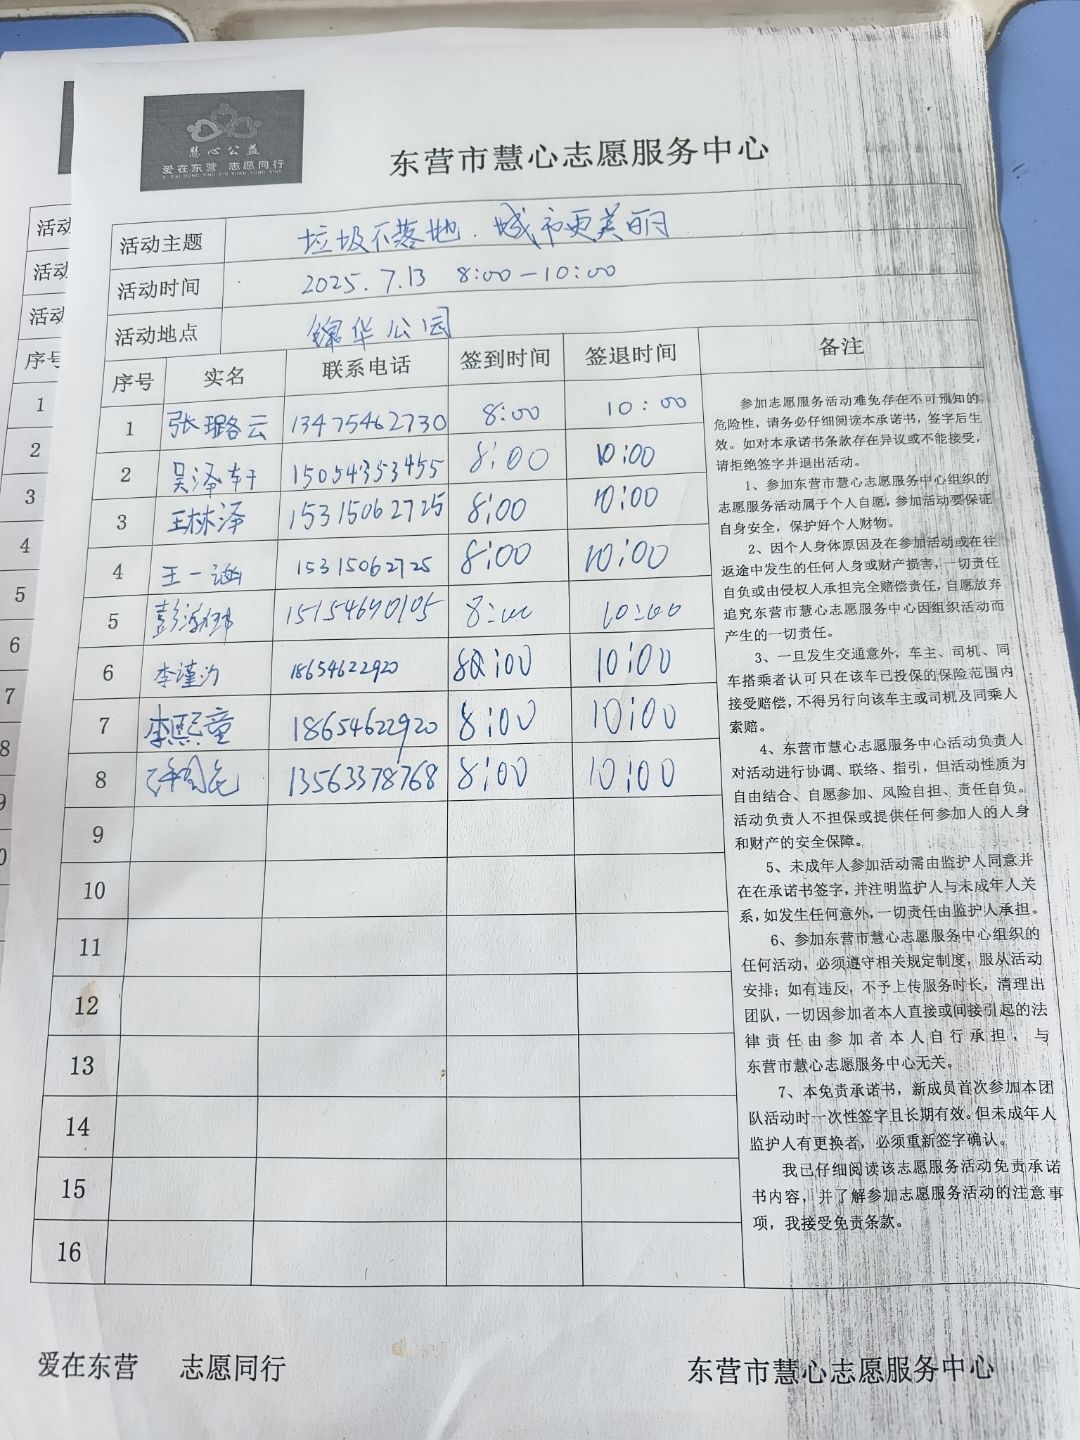 慧心公益
爱在东营 志愿同行
东营市慧心志愿服务中心
活动主题 垃圾不落地.城市更美丽
活动时间 2025.7.13 8:00-10:00
活动地点 锦华公园
序号 实名 联系电话 签到时间 签退时间 备注
1 张璐云 13475462730 8:00 10:00
2 吴泽轩 15054353455 8:00 10:00
3 王林泽 15315062725 8:00 10:00
4 王一 15315062725 8:00 10:00
5 彭 15154690105 8:00 10:00
6 李谨汐 18654622920 8:00 10:00
7 李熙童 18654622920 8:00 10:00
8 13563378768 8:00 10:00
9
10
11
12
13
14
15
16
参加志愿服务活动难免存在不可预知的
危险性，请务必仔细阅读本承诺书，签字后生
效。如对本承诺书条款存在异议或不能接受，
请拒绝签字并退出活动。
1、参加东营市慧心志愿服务中心组织的
志愿服务活动属于个人自愿，参加活动要保证
自身安全，保护好个人财物。
2、因个人身体原因及在参加活动或在往
返途中发生的任何人身或财产损害，一切责任
自负或由侵权人承担完全赔偿责任，自愿放弃
追究东营市慧心志愿服务中心因组织活动而
产生的一切责任。
3、一旦发生交通意外，车主、司机、同
车搭乘者认可只在该车已投保的保险范围内
接受赔偿，不得另行向该车主或司机及同乘人
索赔。
4、东营市慧心志愿服务中心活动负责人
对活动进行协调、联络、指引，但活动性质为
自由结合、自愿参加、风险自担、责任自负。
活动负责人不担保或提供任何参加人的人身
和财产的安全保障。
5、未成年人参加活动需由监护人同意并
在在承诺书签字，并注明监护人与未成年人关
系，如发生任何意外，一切责任由监护人承担。
6、参加东营市慧心志愿服务中心组织的
任何活动，必须遵守相关规定制度，服从活动
安排；如有违反，不予上传服务时长，清理出
团队，一切因参加者本人直接或间接引起的法
律责任由参加者本人自行承担，与
东营市慧心志愿服务中心无关。
7、本免责承诺书，新成员首次参加本团
队活动时一次性签字且长期有效。但未成年人
监护人有更换者，必须重新签字确认。
我已仔细阅读该志愿服务活动免责承诺
书内容，并了解参加志愿服务活动的注意事
项，我接受免责条款。
爱在东营 志愿同行 东营市慧心志愿服务中心
活动
活动
活动
序号
1
2
3
4
5
6
7
8
9
0